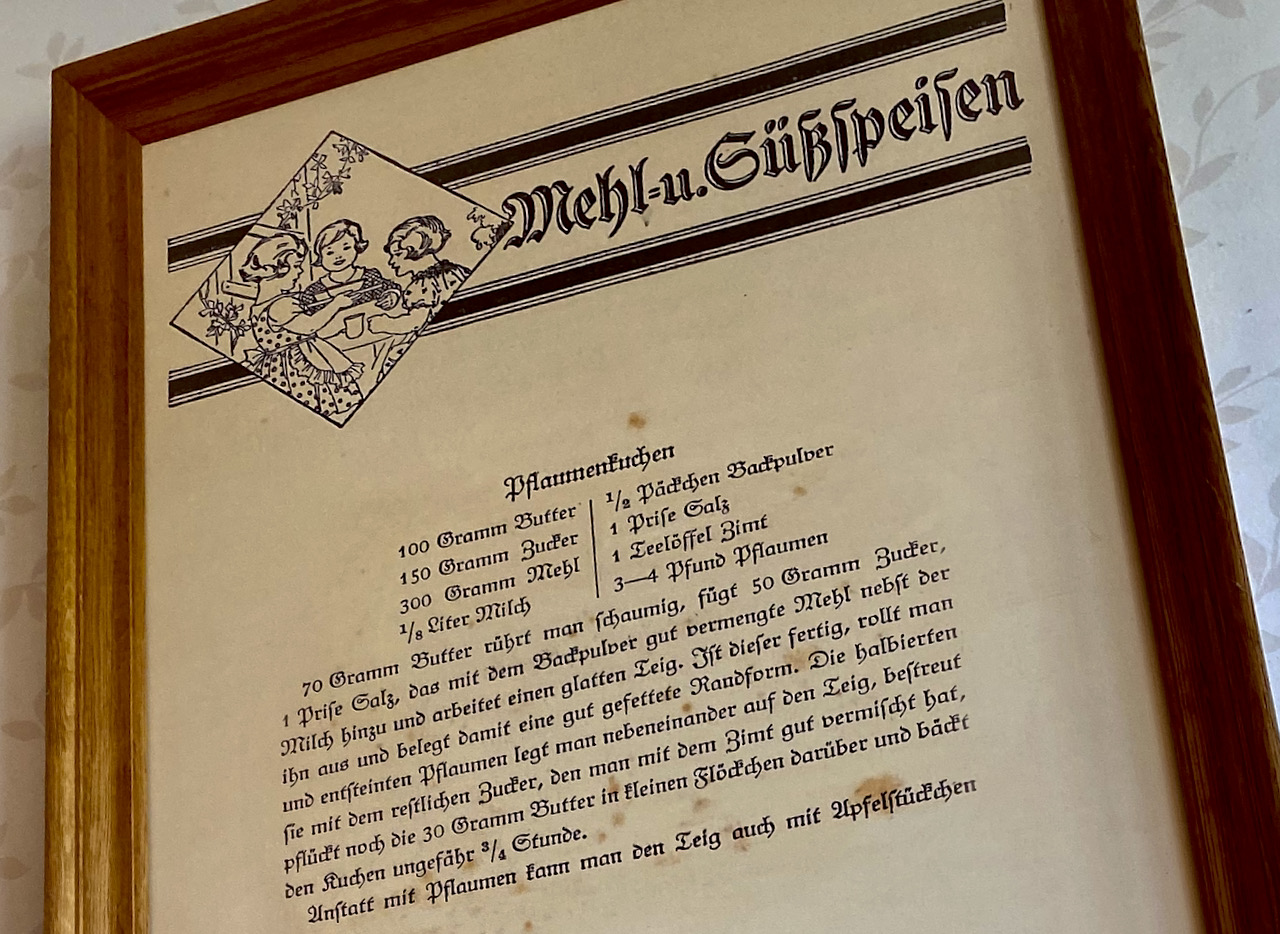 Mehl- u. Süßspeisen
Pflaumenkuchen
100 Gramm Butter
150 Gramm Zucker
300 Gramm Mehl
1/8 Liter Milch
1/2 Päckchen Backpulver
1 Prise Salz
1 Teelöffel Zimt
3—4 Pfund Pflaumen
70 Gramm Butter rührt man schaumig, fügt 50 Gramm Zucker,
1 Prise Salz, das mit dem Backpulver gut vermengte Mehl nebst der
Milch hinzu und arbeitet einen glatten Teig. Ist dieser fertig, rollt man
ihn aus und belegt damit eine gut gefettete Randform. Die halbierten
und entsteinten Pflaumen legt man nebeneinander auf den Teig, bestreut
sie mit dem restlichen Zucker, den man mit dem Zimt gut vermischt hat,
pflückt noch die 30 Gramm Butter in kleinen Flöckchen darüber und bäckt
den Kuchen ungefähr 3/4 Stunde.
Anstatt mit Pflaumen kann man den Teig auch mit Apfelstückchen